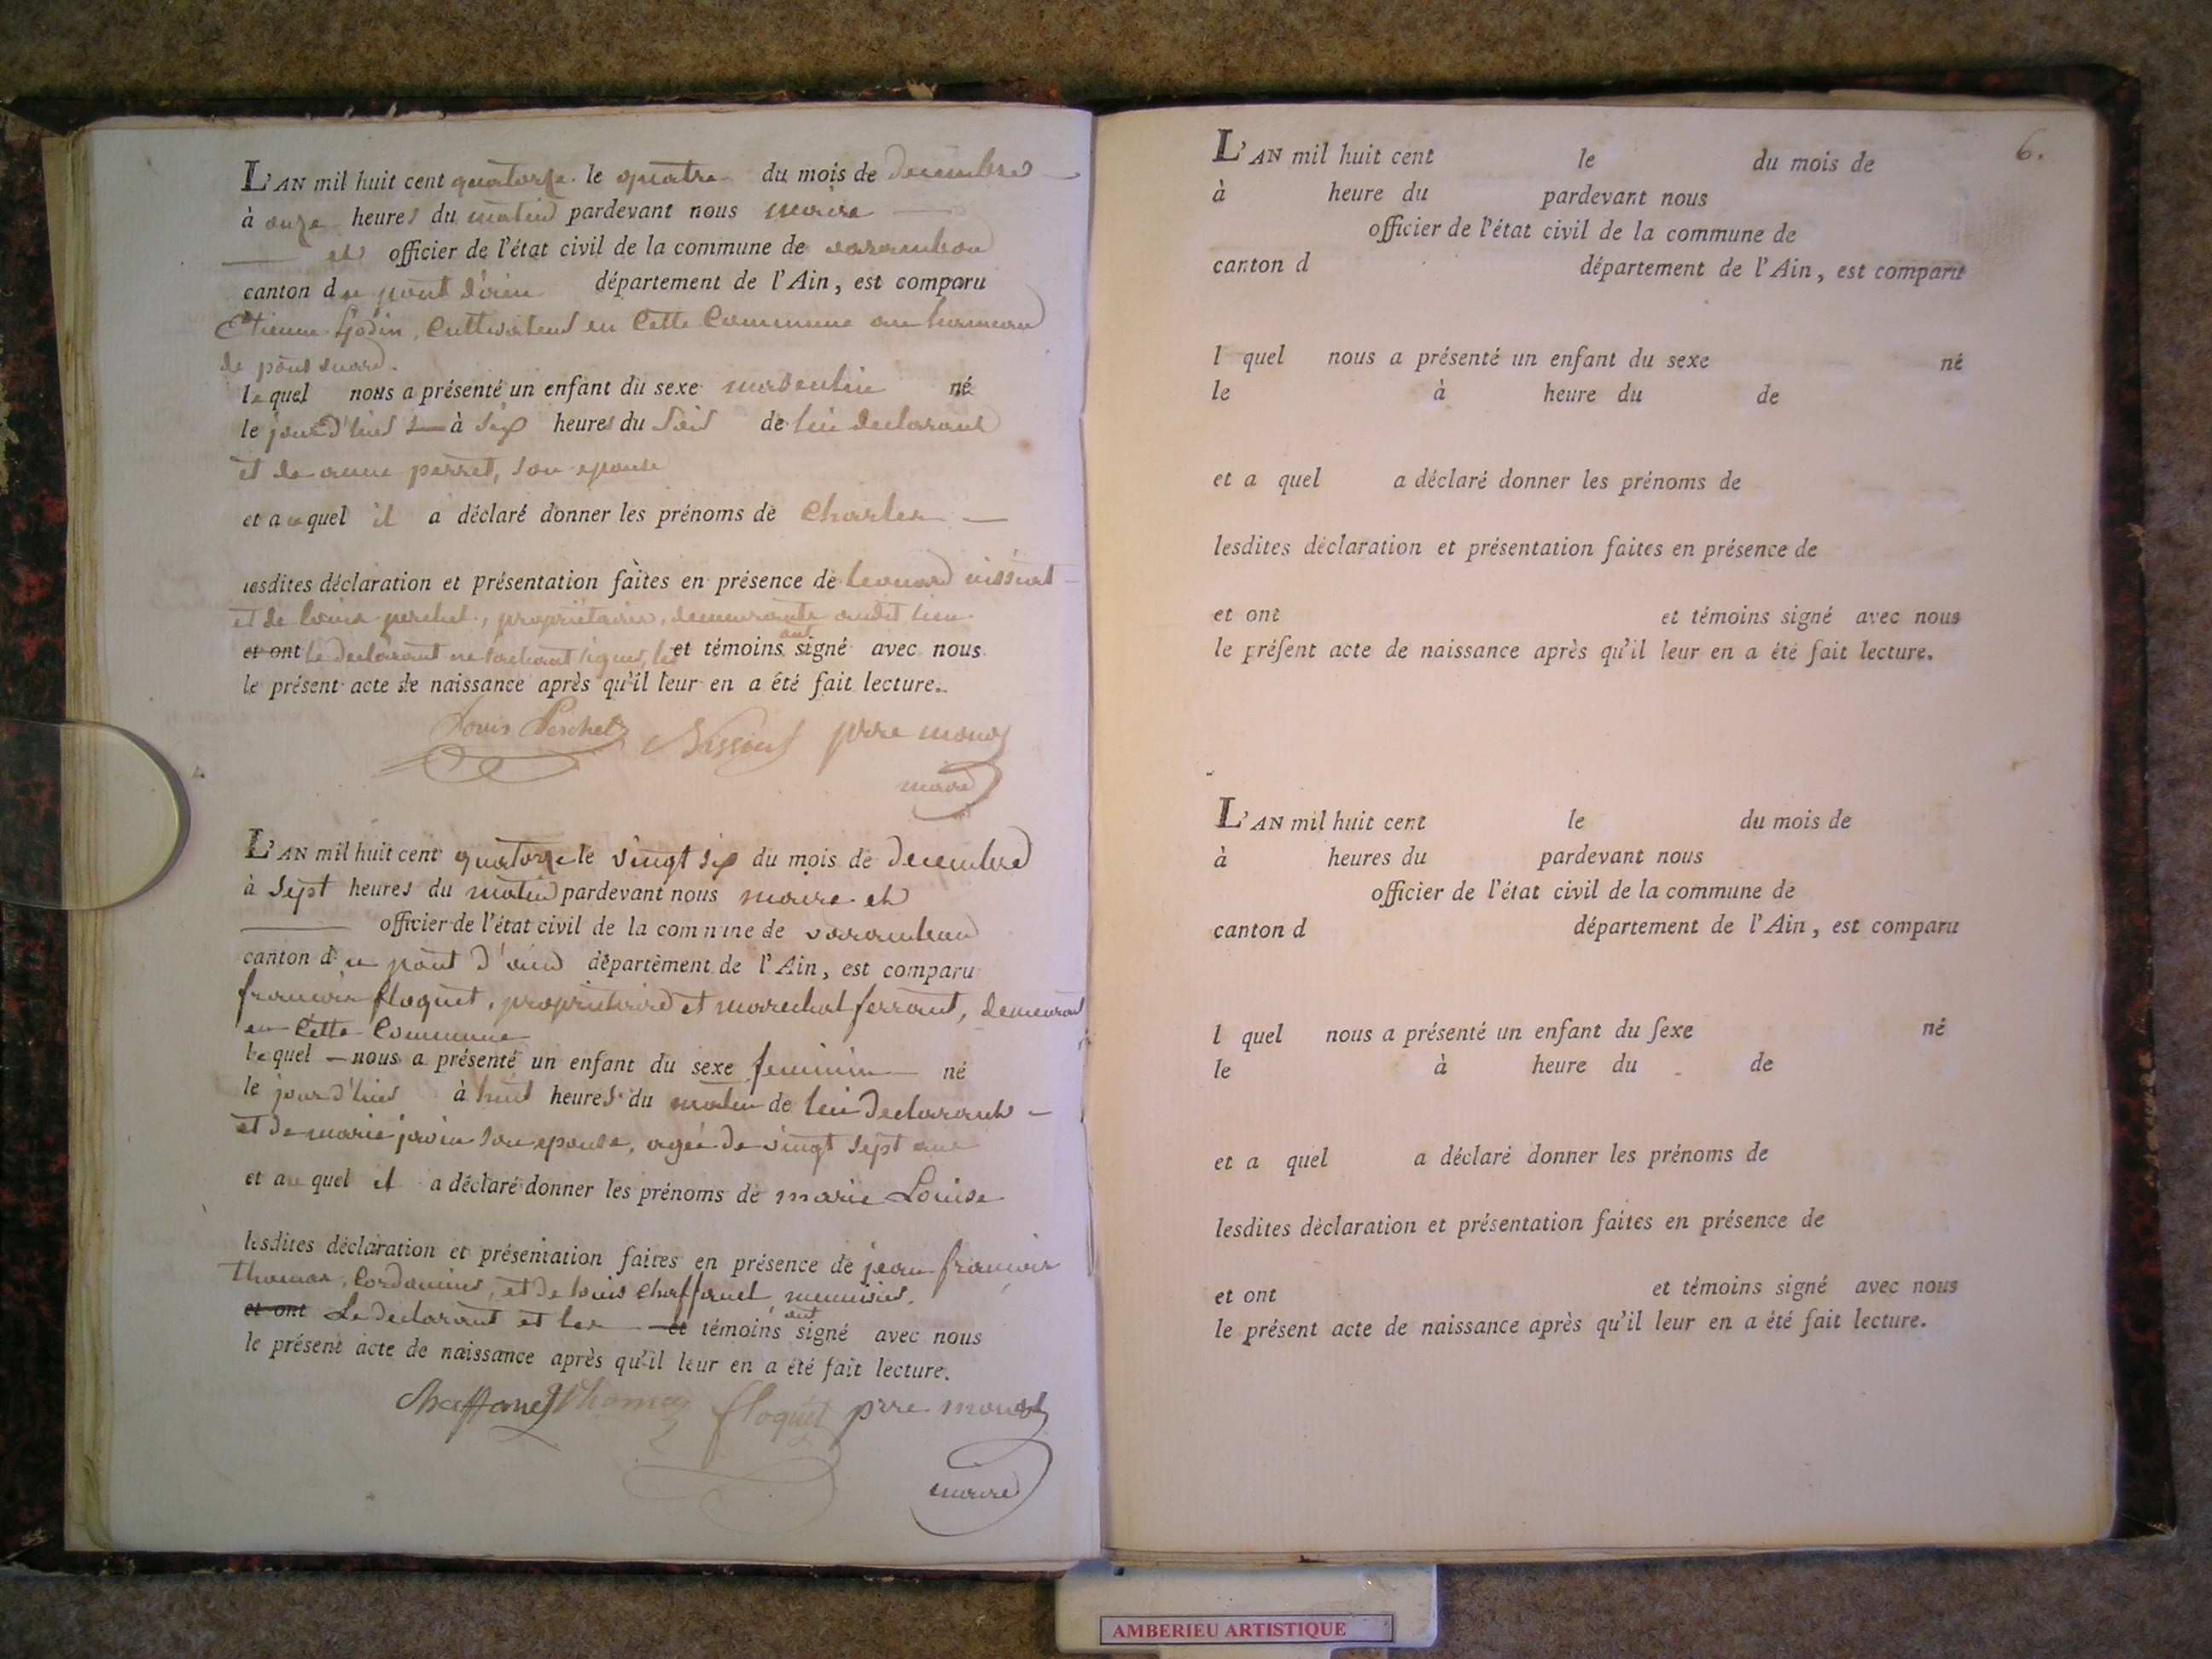 L'AN mil huit cent quatorze le quatre du mois de decembre
à onze heures du matin pardevant nous maire
et officier de l'état civil de la commune de varambon
canton du pont d'ain département de l'Ain, est comparu
Etienne Godin, Cultivateur en Cette Commune au hameau
de
lequel nous a présenté un enfant du sexe masculin né
le jour d'hier à six heures du soir de lui declarant
et de anne perret, son epouse
et auquel il a déclaré donner les prénoms de Charles
lesdites déclaration et présentation faites en présence de Leonard
et de Louis perchet, propriétaires, demeurants audit lieu
et ont le declarant ne sachant signer, les et témoins ont signé avec nous
le présent acte de naissance après qu'il leur en a été fait lecture.
Louis Perchet pre monet
maire
L'AN mil huit cent quatorze le vingt six du mois de decembre
à sept heures du matin pardevant nous maire et
officier de l'état civil de la commune de varambon
canton du pont d'ain département de l'Ain, est comparu
francois floquet, propriétaire et marechal ferrant, demeurant
en Cette Commune
lequel nous a présenté un enfant du sexe feminin né
le jour d'hier à huit heures du matin de lui declarant
et de marie javin son epouse, agée de vingt sept ans
et auquel il a déclaré donner les prénoms de marie Louise
lesdites déclaration et présentation faites en présence de jean francois
thomas, Cordonnier, et de louis Chaffanel, menuisier.
et ont Le declarant et les et témoins ont signé avec nous
le présent acte de naissance après qu'il leur en a été fait lecture.
Chaffanel Thomas floquet pre monet
maire
6.
L'AN mil huit cent le du mois de
à heure du pardevant nous
officier de l'état civil de la commune de
canton d département de l'Ain, est comparu
l quel nous a présenté un enfant du sexe né
le à heure du de
et a quel a déclaré donner les prénoms de
lesdites déclaration et présentation faites en présence de
et ont et témoins signé avec nous
le préſent acte de naissance après qu'il leur en a été fait lecture.
L'AN mil huit cent le du mois de
à heures du pardevant nous
officier de l'état civil de la commune de
canton d département de l'Ain, est comparu
l quel nous a présenté un enfant du ſexe né
le à heure du de
et a quel a déclaré donner les prénoms de
lesdites déclaration et présentation faites en présence de
et ont et témoins signé avec nous
le présent acte de naissance après qu'il leur en a été fait lecture.
AMBERIEU ARTISTIQUE